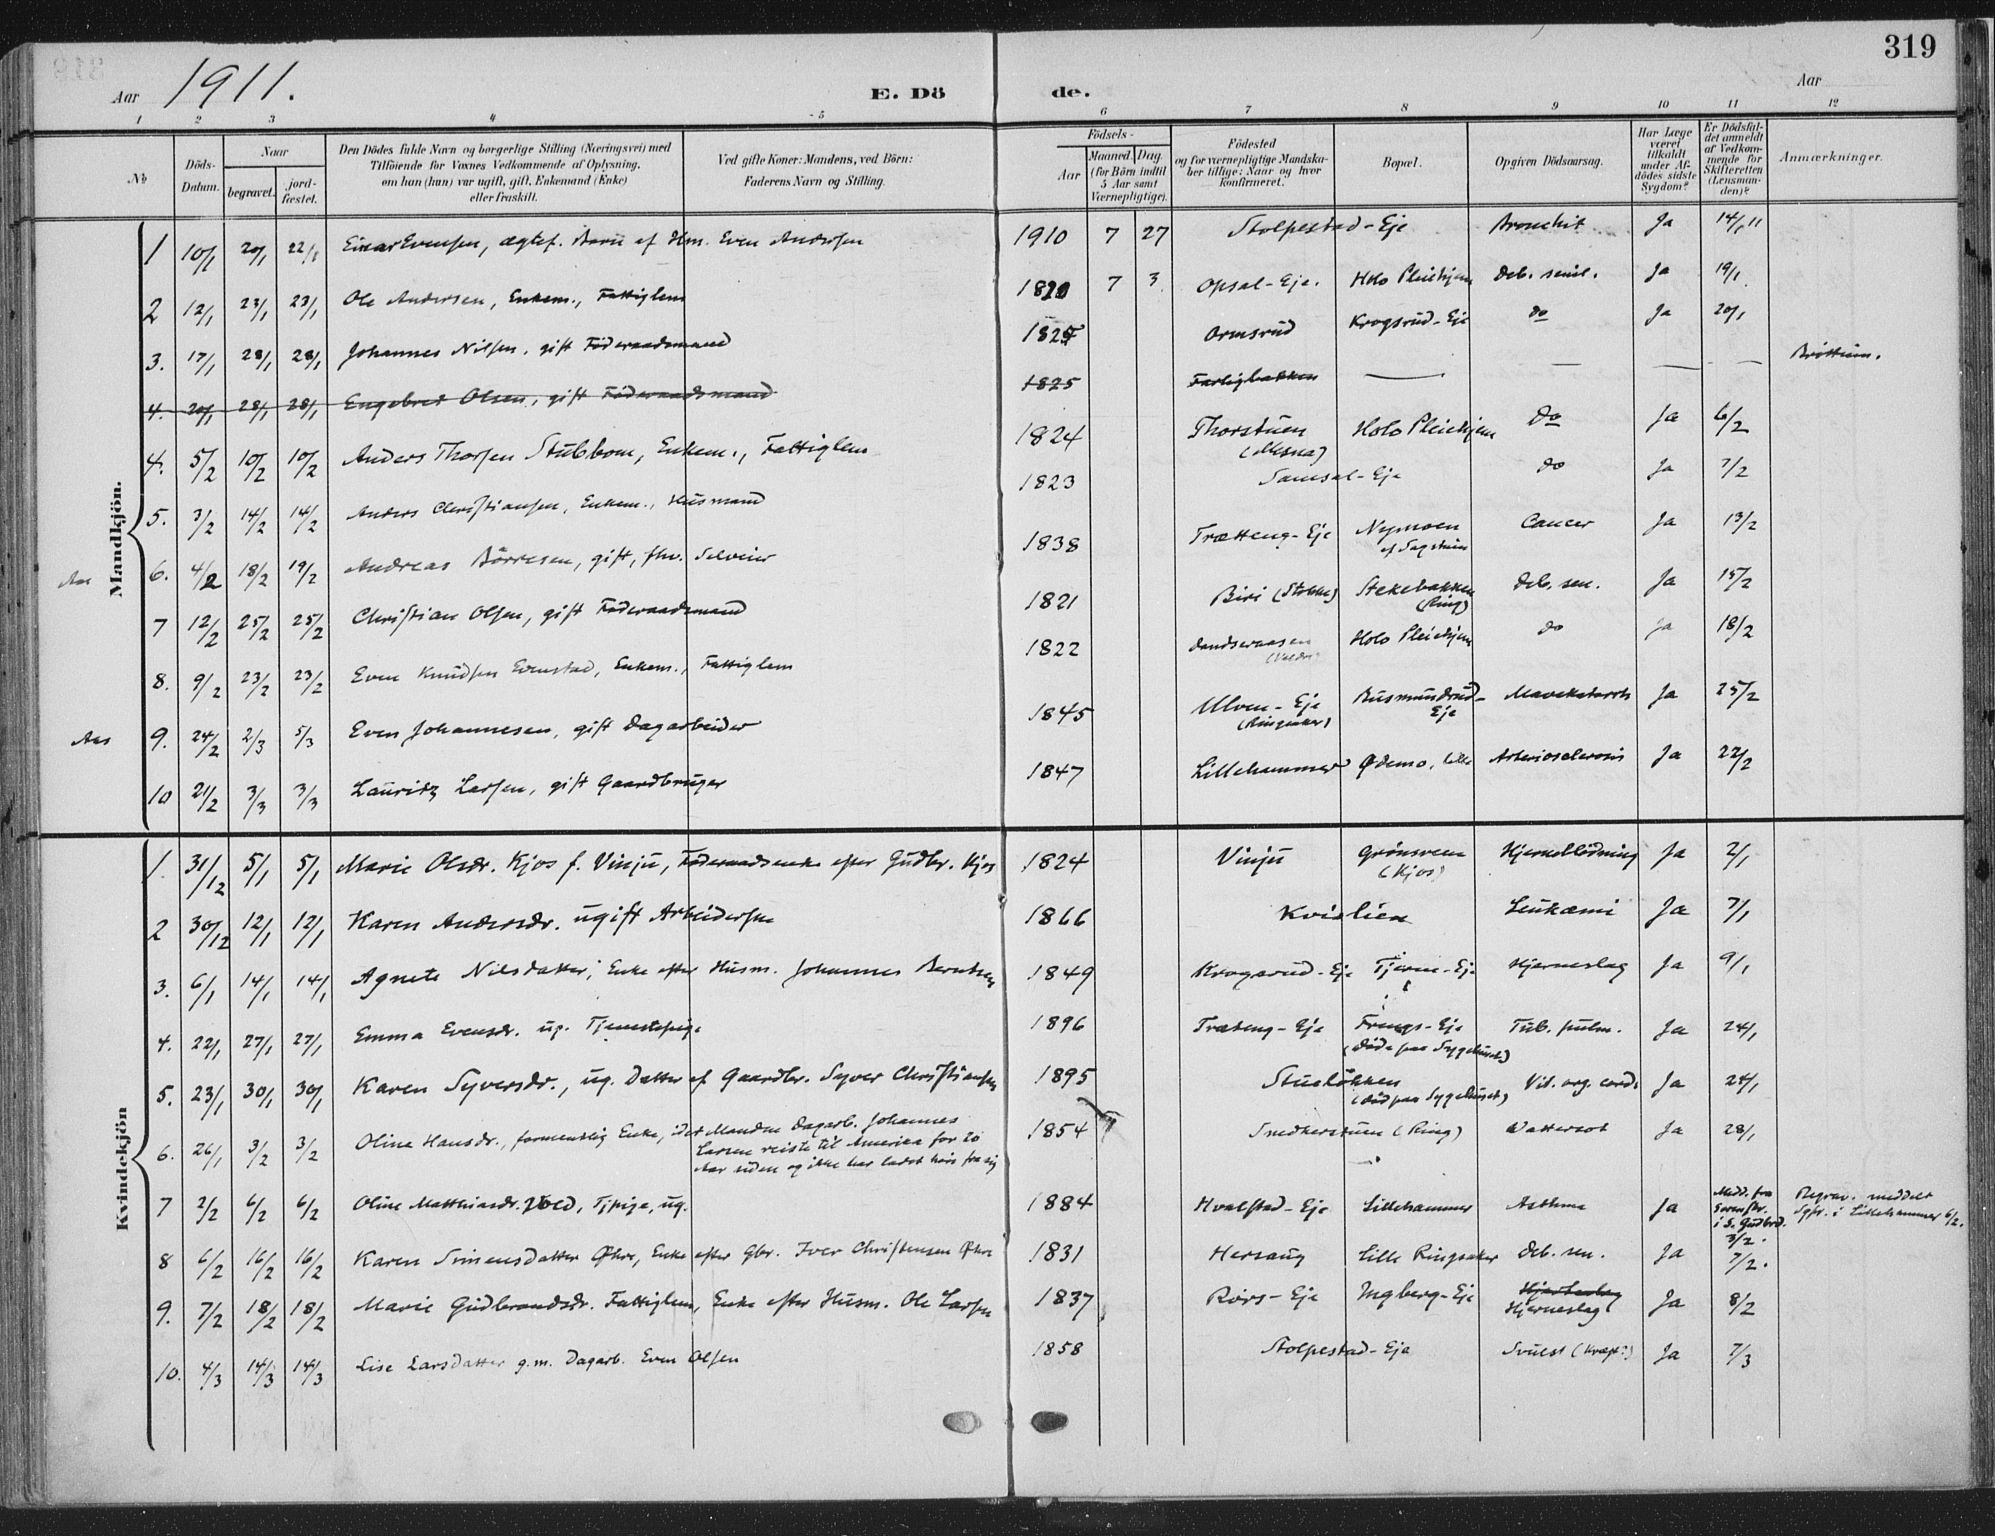 319
Aar 1911. E. Dö de. Aar
1 2 3 4 5 6 7 8 9 10 11 12
№ Döds-Datum. Naar begravet. jord-fæstet. Den Dödes fulde Navn og borgerlige Stilling (Næringsvei) med Tilföiende for Voxnes Vedkommende af Oplysning, om han (hun) var ugift, gift, Enkemand (Enke) eller fraskilt. Ved gifte Koner: Mandens, ved Börn: Faderens Navn og Stilling. Födsels- Aar Maaned. Dag. (for Börn indtil 5 Aar samt Værnepligtige). Födested og for værnepligtige Mandska-ber tillige: Naar og hvor konfirmeret. Bopæl. Opgiven Dödsaarsag. Har Læge været tilkaldt under Af-dödes sidste Sygdom? Er Dödsfal-det anmeldt af Vedkom-mende for Skifteretten (Lensman-den)? Anmærkninger.
Mandkjön.
1 10/1 20/1 22/1 Einar Evensen, ægtef. Barn af Hm. Even Andersen 1910 7 27 Stolpestad-Eje Bronchit Ja 14/1 11
2 12/1 23/1 23/1 Ole Andersen, Enkem., Fattiglem 1820 7 3 Opsal-Eje. Holo Pleiehjem Deb. senil. Ja 19/1
3. 17/1 28/1 28/1 Johannes Nilsen, gift Föderaadsmand 1825 Ormsrud Krogsrud-Eje do Ja 20/1
4. 20/1 28/1 28/1 Engebret Olsen, gift Föderaadsmand 1825 — — — —
4. 5/2 10/2 10/2 Anders Thorsen Stubbom, Enkem., Fattiglem 1824 Thorstuen (Mesna) Holo Pleiehjem do Ja 6/2
5. 3/2 14/2 14/2 Anders Christiansen, Enkem., Husmand 1823 Samsal-Eje do Ja 7/2
Aas 6. 4/2 18/2 19/2 Andreas Börresen, gift, fhv. Selveier 1838 Trætteng-Eje Nymoen Cancer Ja 13/2
7 12/2 25/2 25/2 Christian Olsen, gift Föderaadsmand 1821 Biri Stekebakken (Ring) Deb. sen. Ja 15/2
8. 9/2 23/2 23/2 Even Knudsen Evenstad, Enkem., Fattiglem 1822 Holo Pleiehjem do Ja 18/2
Aas 9. 24/2 2/3 5/3 Even Johannesen, gift Dagarbeider 1845 Ulven-Eje (Ringsaker) Busmundrud-Eje Mavekatarrh Ja 25/2
10 21/2 3/3 3/3 Lauritz Larsen, gift Gaardbruger 1847 Lillehammer Ødemo, Arteriosclerosis Ja 22/2
Kvindekjön
1. 31/12 5/1 5/1 Marie Olsdr. Kjos f. Vinju, Föderaadsenke efter Gudbr. Kjos 1824 Vinju Grönsveen (Kjos) Hjerneblödning Ja 2/1
2 30/12 12/1 12/1 Karen Andersdr. ugift Arbeiderske 1866 Kvislien Leukæmi Ja 7/1
3. 6/1 14/1 14/1 Agnete Nilsdatter, Enke efter Husm. Johannes Berntsen 1849 Krogsrud-Eje Tjerne-Eje Hjerneslag Ja 9/1
4. 22/1 27/1 27/1 Emma Evensdr. ug. Tjenestepige 1896 Træteng-Eje Frengs-Eje (död paa Sygehuset) Tub. pulm. Ja 24/1
5. 23/1 30/1 30/1 Karen Syversdr., ug. Datter af Gaardbr. Syver Christiansen 1895 Stuslökken (död paa Sygehuset) Vit. org. cord. Ja 24/1
6. 26/1 3/2 3/2 Oline Hansdr., formentlig Enke, idet Manden Dagarb. Johannes
Larsen reiste til Amerika for 20
Aar siden og ikke har ladet höre fra sig 1854 Snedkerstuen (Ring) Vattersot Ja 28/1
7 2/2 6/2 6/2 Oline Matthiasdr. Tjpige, ug. 1884 Hvalstad-Eje Lillehammer Asthma Ja Medd. fra Sorenskr. i S. Gudbrd. 3/2. Begrav. meddelt Spr. i Lillehammer 6/2.
8 6/2 16/2 16/2 Karen Simensdatter Öhre, Enke efter Gbr. Iver Christensen Öhre 1831 Hersaug Lille Ringsaker Deb. sen. Ja 7/2.
9. 7/2 18/2 18/2 Marie Gudbrandsdr. Fattiglem, Enke efter Husm. Ole Larsen 1837 Rörs-Eje Ingberg-Eje Hjerteslag Hjerneslag Ja 8/2
10. 4/3 14/3 14/3 Lise Larsdatter g.m. Dagarb. Even Olsen 1858 Stolpestad-Eje Svulst (Kræft?) Ja 7/3